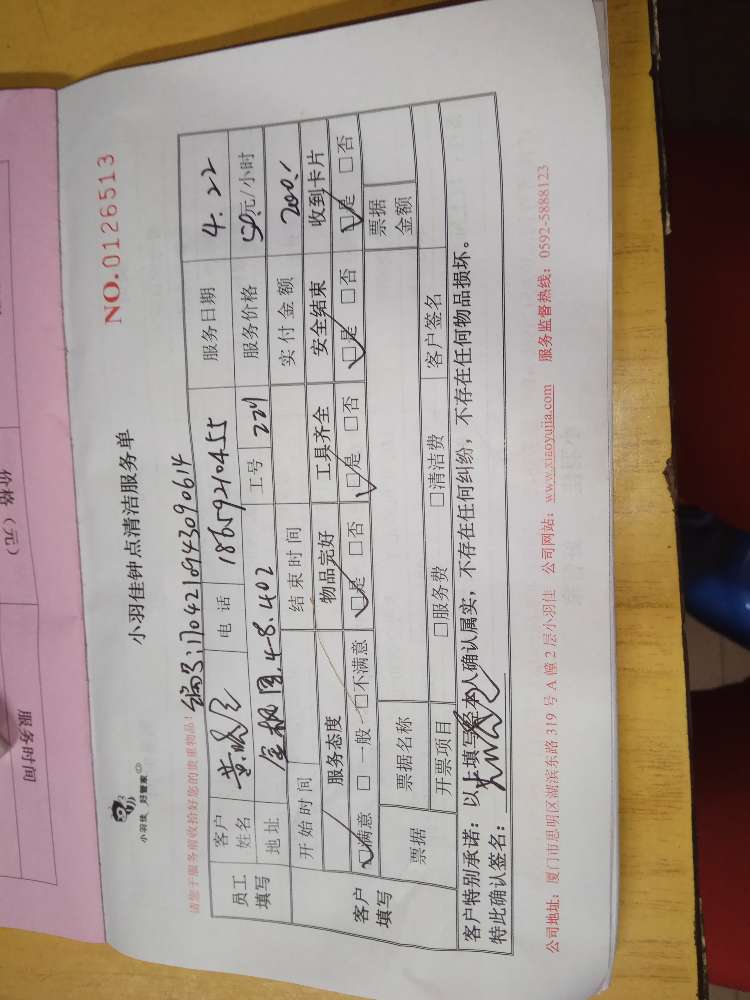 小羽佳 好管家
小羽佳钟点清洁服务单
NO.0126513
请您于服务前收拾好您的贵重物品!
编号:170421694309061 4
员工填写 客户姓名 黄 电话 18659210455 服务日期 4.22
地址 金枫园.48.402 工号 221 服务价格 50元/小时
客户填写 开始时间 结束时间 实付金额 200.
服务态度 物品完好 工具齐全 安全结束 收到卡片
☑满意 □一般 □不满意 ☑是 □否 ☑是 □否 ☑是 □否 ☑是 □否
票据 票据名称 票据金额
开票项目 □服务费 □清洁费 客户签名
客户特别承诺:以上填写经本人确认属实,不存在任何纠纷,不存在任何物品损坏。
特此确认签名:
公司地址:厦门市思明区湖滨东路 319 号 A 幢 2 层小羽佳 公司网站:www.xiaoyujia.com 服务监督热线:0592-5888123
价格(元)
服务时间